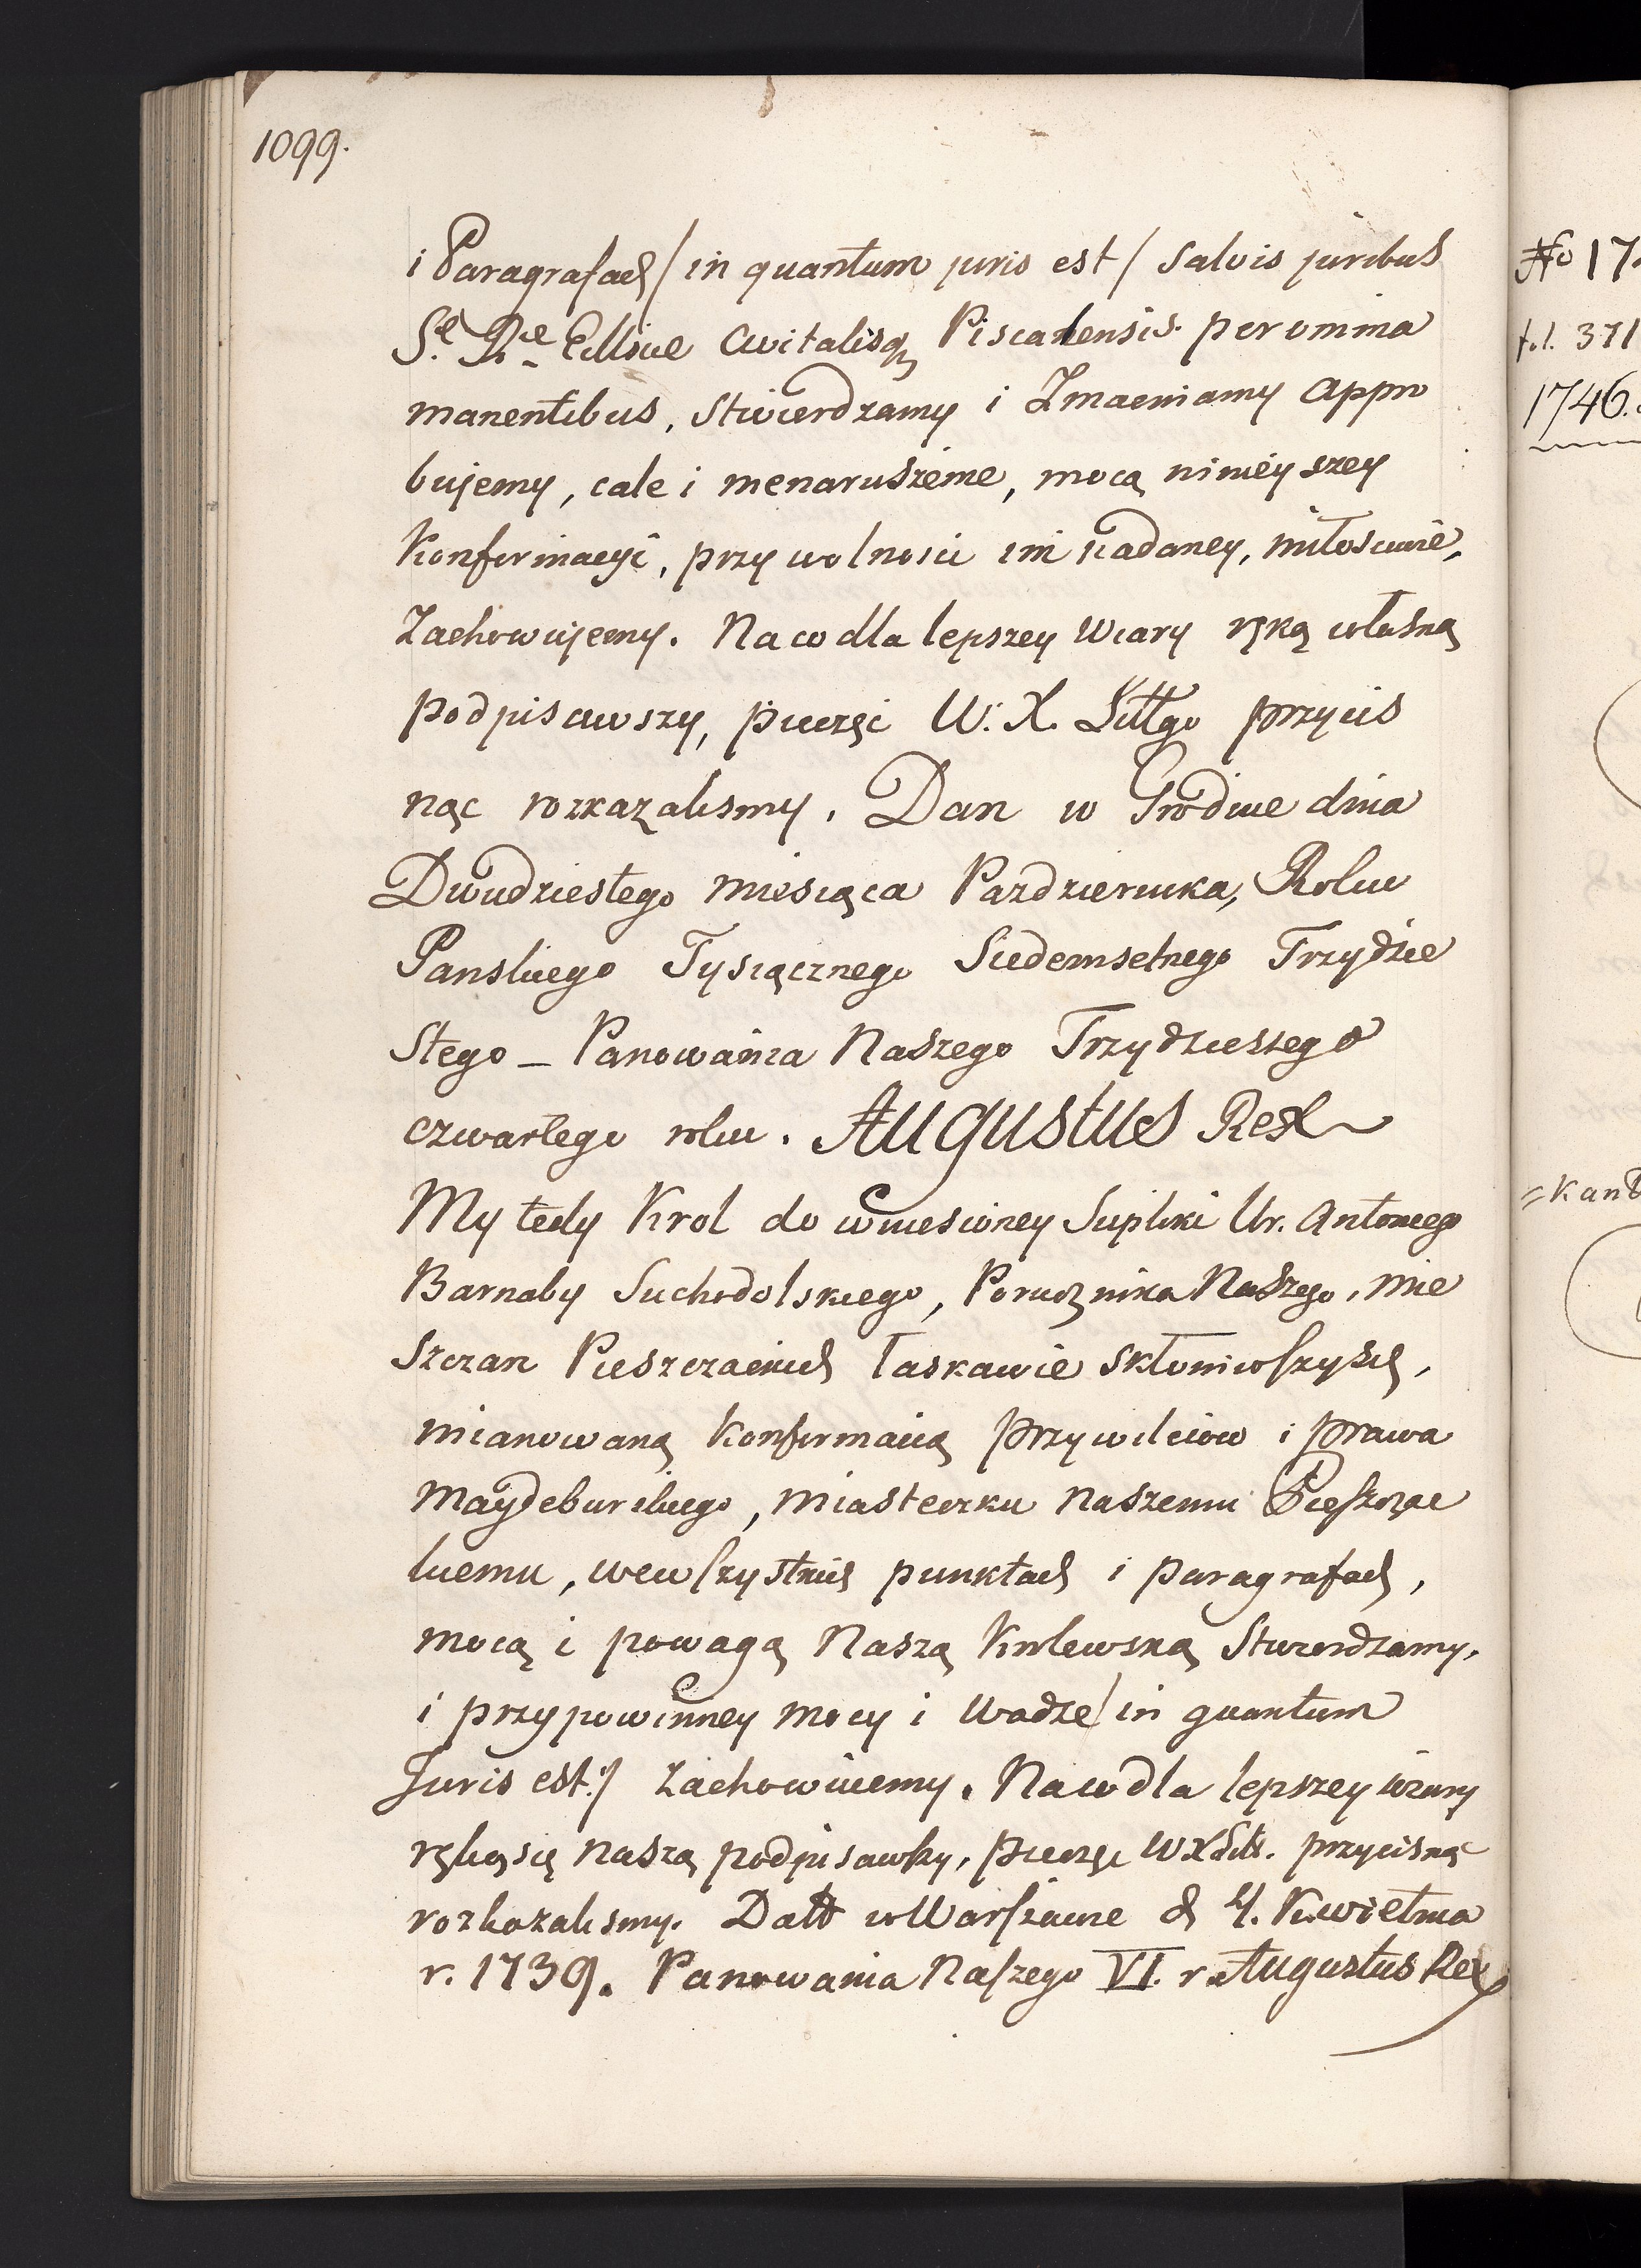 1099.
i Paragrafach / in quantum juris est / Salvis juribus
Sæ Ræ Ecclsiae Civitatisq Piscatensis per omnia
manentibus, Stwierdzamy i Zmacniamy appro
bujemy, cale i nienaruszenie, mocą ninieyszey
Konfirmacyi, przy wolnosci im nadaney, miłosciwie,
Zachowujemy. Na co dla lepszey wiary ręką własną
podpisawszy, pieczęć W. X. Littgo przycis
nąc rozkazalismy. Dan w Grodnie dnia
Dwudziestego miesiąca Pazdziernika, Roku
Panskiego Tysiącznego Siedemsetnego Trzydzie
Stego _ Panowania Naszego Trzydziestego
czwartego roku. Augustus Rex
My tedy Krol do wniesioney Supliki Ur. Antoniego
Barnaby Suchodolskiego, Porucznika Naszego, mie
szczan Pieszczackich łaskawie skłoniwszysię,
mianowaną konfirmacią przywileiow i prawa
maydeburskiego, miasteczku naszemu Pieszczac
kiemu, wewszystkich punktach i paragrafach,
mocą i powagą Naszą Krolewską Stwierdzamy,
i przypowinney mocy i wadze / in quantum
Juris est:/ zachowuiemy. Naco dla lepszey wiary
rękąsię naszą podpisawszy, pieczęć WXLitt. przycisnąć
rozkazalismy. Datt wWarszawie d 4. Kwietnia
r. 1739. Panowania Naszego VI. r. Augustus Rex
No 17
fol. 371
1746.